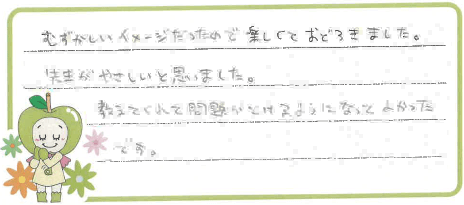 むずかしいイメージだったので楽しくておどろきました。
先生がやさしいと思いました。
教えてくれて問題がとけるようになってよかった
です。